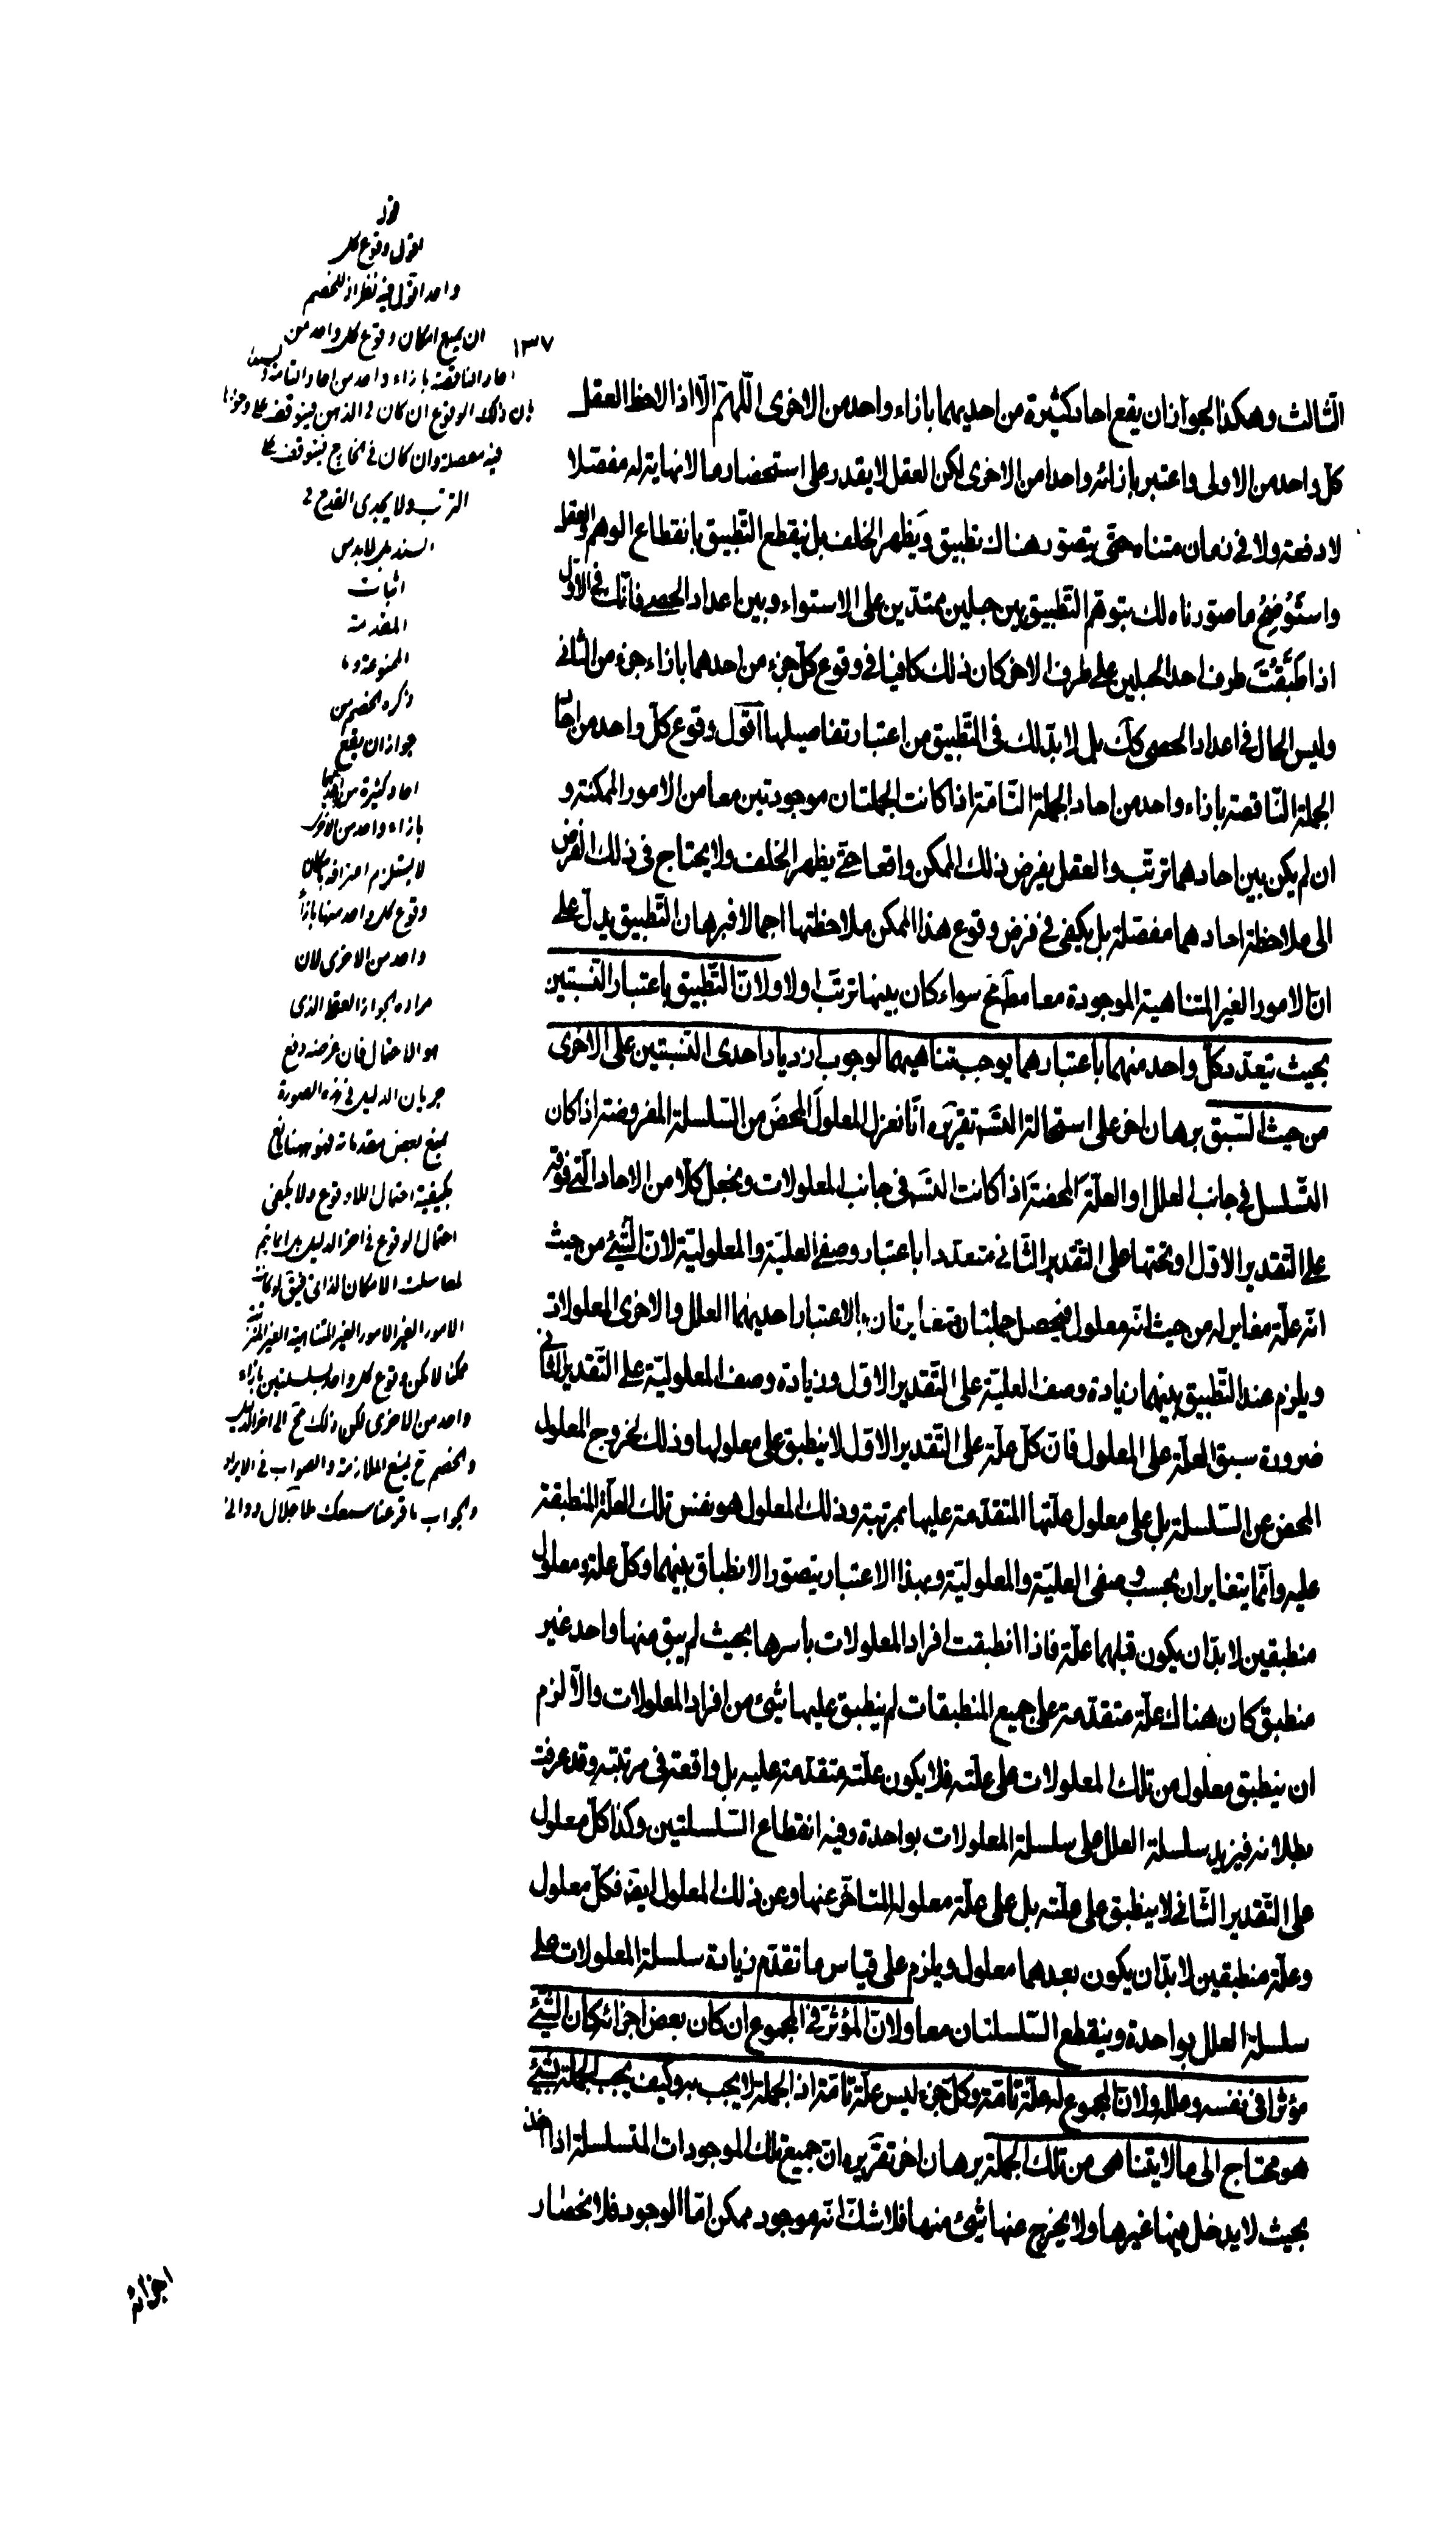 ١٣٧
الثالث وهكذا لجواز ان يقع احاد كثيرة من احديهما بازاء واحد من الاخرى اللّهمّ الّا اذا لاحظ العقل
كلّ واحد من الاولى واعتبر بازائه واحدا من الاخرى لكن العقل لا يقدر على استحضار ما لا نهاية له مفصّلا
لا دفعة ولا فى زمان متناه حتى يتصوّر هناك تطبيق ويظهر الخلف بل ينقطع التّطبيق بانقطاع الوهم والعقل
واستَوْضِحْ ما صوّرناه لك بتوهّم التّطبيق بين حبلين ممتدّين على الاستواء وبين اعداد الحصى فانّك فى الاوّل
اذا طبّقت طرف احد الحبلين على طرف الاخر كان ذلك كافيا فى وقوع كلّ جزء من احدهما بازاء جزء من الثانى
وليس الحال فى اعداد الحصى كك بل لا بدّ لك فى التّطبيق من اعتبار تفاصيلها اقول وقوع كلّ واحد من احاد
الجملة النّاقصة بازاء واحد من احاد الجملة التّامّة اذا كانت الجملتان موجودتين معا من الامور الممكنة و
ان لم يكن بين احادهما ترتّب والعقل يفرض ذلك الممكن واقعا حتى يظهر الخلف ولا يحتاج فى ذلك الفرض
الى ملاحظة احادهما مفصّلة بل يكفى فى فرض وقوع هذا الممكن ملاحظتها اجمالا فبرهان التّطبيق يدلّ على
انّ الامور الغير المتناهية الموجودة معا مطلقا مح سواء كان بينها ترتّب او لا ولانّ التّطبيق باعتبار النّسبتين
بحيث يتعدّد كلّ واحد منهما باعتبارهما يوجب تناهيهما لوجوب ازدياد احدى النّسبتين على الاخرى
من حيث السّبق برهان اخر على استحالة التّسم تقريره انّا نعزل المعلول المحض من السّلسلة المفروضة اذا كان
التّسلسل فى جانب العلل او العلّة المحضة اذا كانت التسم فى جانب المعلولات ونجعل كلّا من الاحاد الّتى فوقه
على التّقدير الاوّل او تحتها على التّقدير الثّانى متعدّدا باعتبار وصفى العليّة والمعلوليّة لانّ الشّئ من حيث
انّه علّة مغاير له من حيث انّه معلول فيحصل جملتان متغايرتان بالاعتبار احديهما العلل والاخرى المعلولات
ويلزم عند التّطبيق بينهما زيادة وصف العليّة على التّقدير الاوّل وزيادة وصف المعلوليّة على التّقدير الثّانى
ضرورة سبق العلّة على المعلول فانّ كلّ علّة على التّقدير الاوّل لا ينطبق على معلولها وذلك لخروج المعلول
المحض عن السّلسلة بل على معلول علّتها المتقدّمة عليها بمرتبة وذلك المعلول هو بنفس تلك العلّة المنطبقة
عليه وانّما يتغايران بحسب وصفى العليّة والمعلوليّة وبهذا الاعتبار يتصوّر الانطباق بينهما وكلّ علة ومعلول
منطبقين لا بدّ ان يكون قبلهما علّة فاذا انطبقت افراد المعلولات باسرها بحيث لم يبق منها واحد غير
منطبق كان هناك علّة متقدّمة على جميع المنطبقات لم ينطبق عليها شئ من افراد المعلولات والّا لزم
ان ينطبق معلول من تلك المعلولات على علّته فلا يكون علّته متقدّمة عليه بل واقعة فى مرتبته وقد عرفت
بطلانه فيزيد سلسلة العلل على سلسلة المعلولات بواحدة وفيه انقطاع السّلسلتين وكذا كلّ معلول
على التّقدير الثّانى لا ينطبق على علّته بل على علّة معلوله المتاخّر عنها وعن ذلك المعلول ايضا فكلّ معلول
وعلّة منطبقين لا بدّ ان يكون بعدهما معلول ويلزم على قياس ما تقدّم زيادة سلسلة المعلولات على
سلسلة العلل بواحدة وينقطع السّلسلتان معا ولانّ المؤثّر فى المجموع ان كان بعض اجزائه كان الشّئ
مؤثرا فى نفسه وعلله ولانّ المجموع له علّة تامّة وكلّ جزء ليس علّة تامّة اذ الجملة لا يجب به وكيف يجب الجملة بشئ
هو محتاج الى ما لا يتناهى من تلك الجملة برهان اخر تقريره انّ جميع تلك الموجودات المتسلسلة اذا اخذ
بحيث لا يدخل فيها غيرها ولا يخرج عنها شئ منها فلا شكّ انّه موجود ممكن امّا الوجود فلانحصار
اجزائه
قوله
اقول وقوع كل
واحد اقول فيه نظر اذ للخصم
ان يمنع امكان وقوع كل واحد من
احاد الناقصة بازاء واحد من احاد التامة
بان ذلك الوقوع ان كان فى الذهن فيتوقف على وجودها
فيه مفصلة وان كان فى الخارج فيتوقف على
الترتب ولا يجدى القدح فى
السند بل لا بد من
اثبات
المقدمة
الممنوعة وما
ذكره الخصم من
جواز ان يقع
احاد كثيرة من احديهما
بازاء واحد من الاخرى
لا يستلزم اعترافه بامكان
وقوع كل واحد منها بازاء
واحد من الاخرى لان
مراده بالجواز العقلى الذى
هو الاحتمال فان غرضه دفع
جريان الدليل فى هذه الصورة
بمنع بعض مقدماته فهو ههنا مانع
يكفيه احتمال اللاوقوع ولا يكفى
احتمال الوقوع فى اجزاء الدليل بل انما يتم
لو كانت
الامور الغير المتناهية الغير المترتبة
ممكنا لامكن وقوع كل واحد بازاء
واحد من الاخرى لكن ذلك مح الى اخر الدليل
والخصم ح يمنع الملازمة والصواب فى الايراد
والجواب ما قرعنا سمعك ملا جلال دوانى